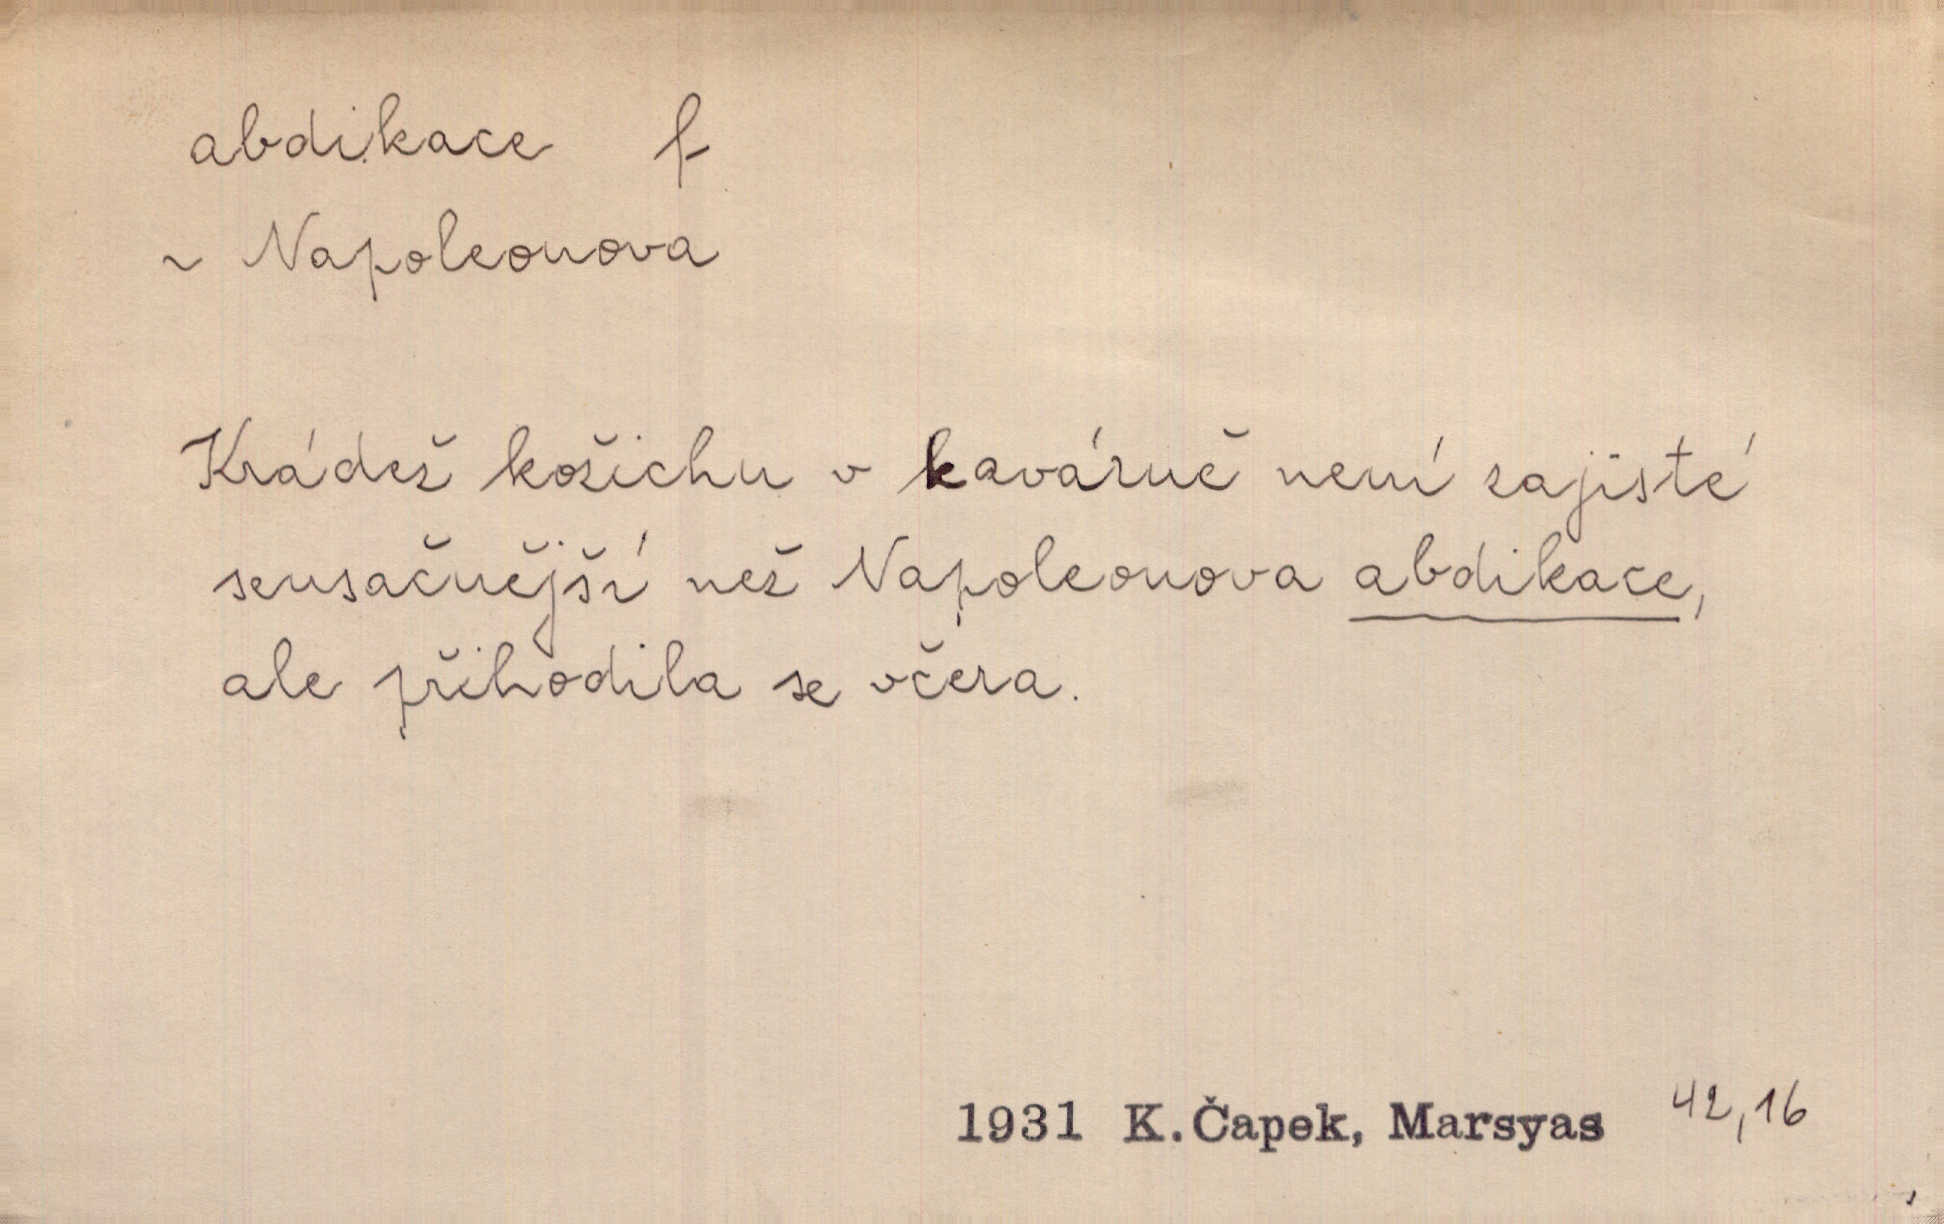 abdikace f
~ Napoleonova
Krádež kožichu v kavárně není zajisté
sensačnější než Napoleonova abdikace,
ale přihodila se včera.
1931 K. Čapek, Marsyas 42,16